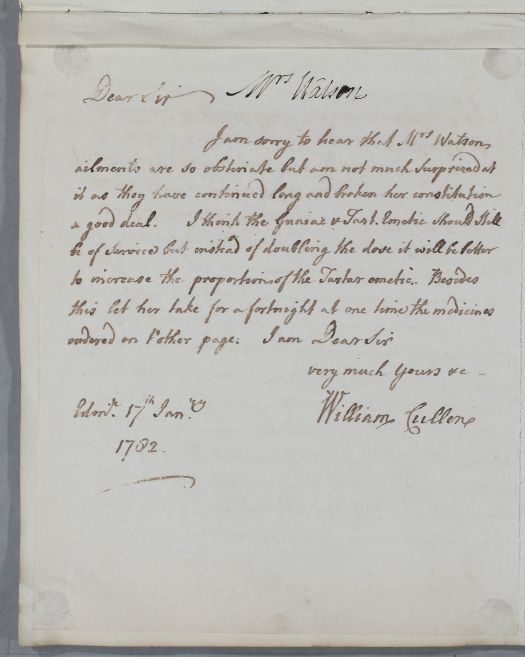 Dear Sir Mrs Watson
I am sorry to hear that Mrs Watson's
ailments are so obstinate but am not much surprized at
it as they have continued long and broken her constitution
a good deal. I think the Guaiac & Tart. Emetic should still
be of service but instead of doubling the dose it will be better
to increase the proportion of the Tartar emetic. Besides
this let her take for a fortnight at one time the medicines
ordered on t'other page. I am Dear Sir
very much yours &c
Edinr. 17th Janry William Cullen
1782.